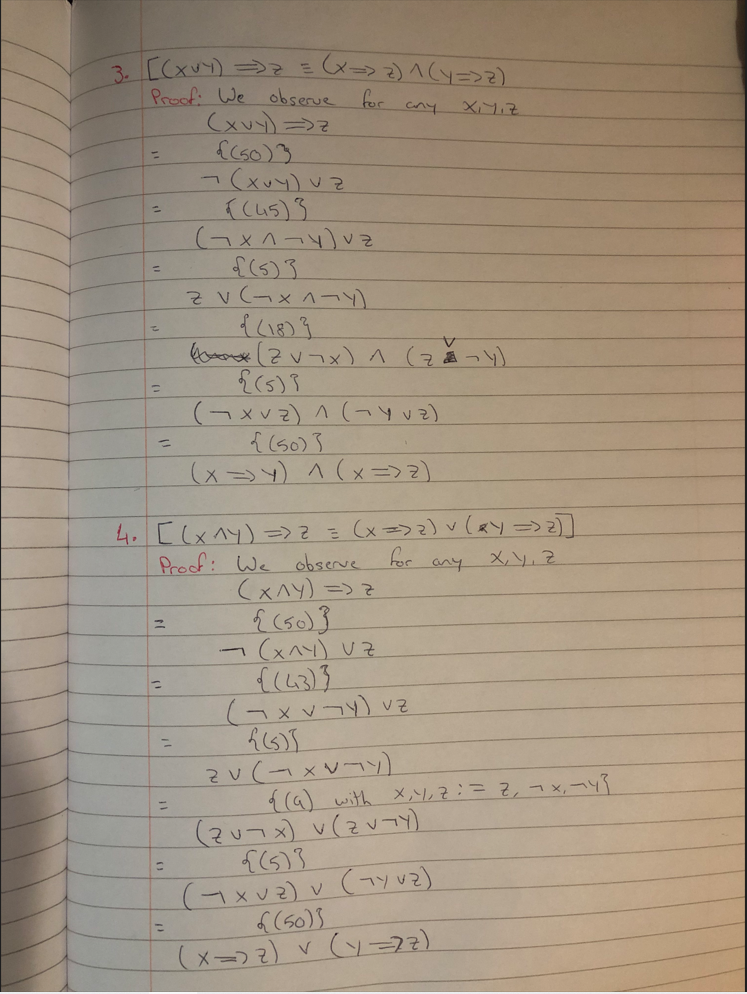 3. [(X∨Y) ⇒ Z ≡ (X ⇒ Z) ∧ (Y ⇒ Z)
Proof: We observe for any X, Y, Z
(X∨Y) ⇒ Z
= {(50)}
¬ (X∨Y) ∨ Z
= {(45)}
(¬ X ∧ ¬ Y) ∨ Z
= {(5)}
Z ∨ (¬ X ∧ ¬ Y)
= {(18)}
(Z ∨ ¬ X) ∧ (Z ∨ ¬ Y)
= {(5)}
(¬ X ∨ Z) ∧ (¬ Y ∨ Z)
= {(50)}
(X ⇒ Y) ∧ (X ⇒ Z)
4. [(X ∧ Y) ⇒ Z ≡ (X ⇒ Z) ∨ (Y ⇒ Z)]
Proof: We observe for any X, Y, Z
(X ∧ Y) ⇒ Z
= {(50)}
¬ (X ∧ Y) ∨ Z
= {(43)}
(¬ X ∨ ¬ Y) ∨ Z
= {(5)}
Z ∨ (¬ X ∨ ¬ Y)
= {(9) with X, Y, Z := Z, ¬ X, ¬ Y}
(Z ∨ ¬ X) ∨ (Z ∨ ¬ Y)
= {(5)}
(¬ X ∨ Z) ∨ (¬ Y ∨ Z)
= {(50)}
(X ⇒ Z) ∨ (Y ⇒ Z)